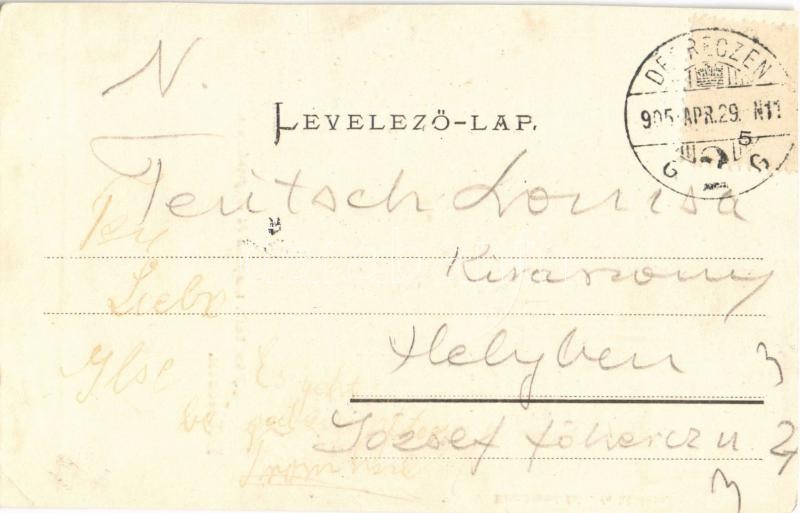 N.
LEVELEZŐ-LAP.
DEBRECZEN
905 APR. 29. N11
5
Teutsch Louisa
Kisasszony
Helyben
József főhercz u 24
Liebe
Ilse
Es geht